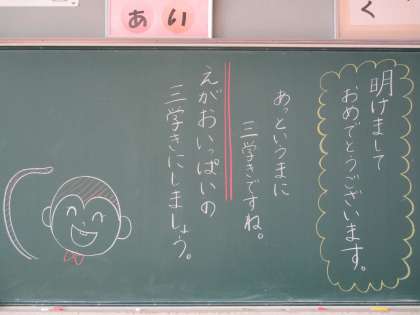 あ い
く
明けまして
おめでとうございます。
あっというまに
三学きですね。
えがおいっぱいの
三学きにしましょう。